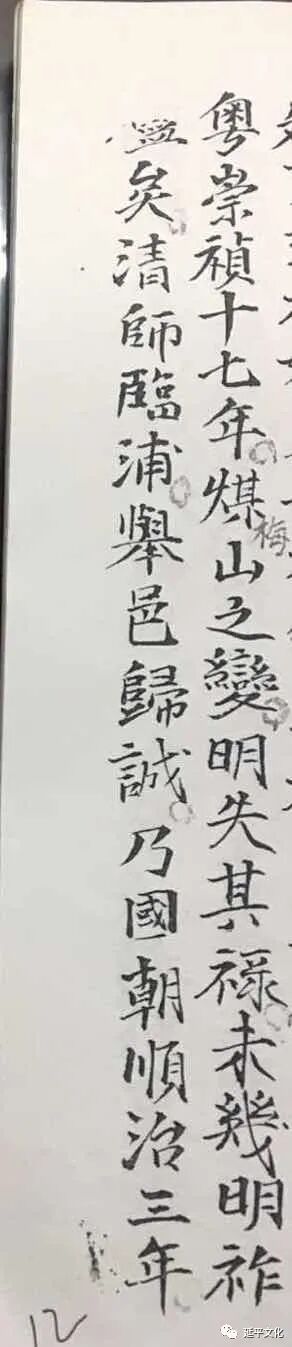 粤崇禎十七年煤山之變明失其祿未幾明祚
矣清師臨浦舉邑歸誠乃國朝順治三年
梅
12
延平文化